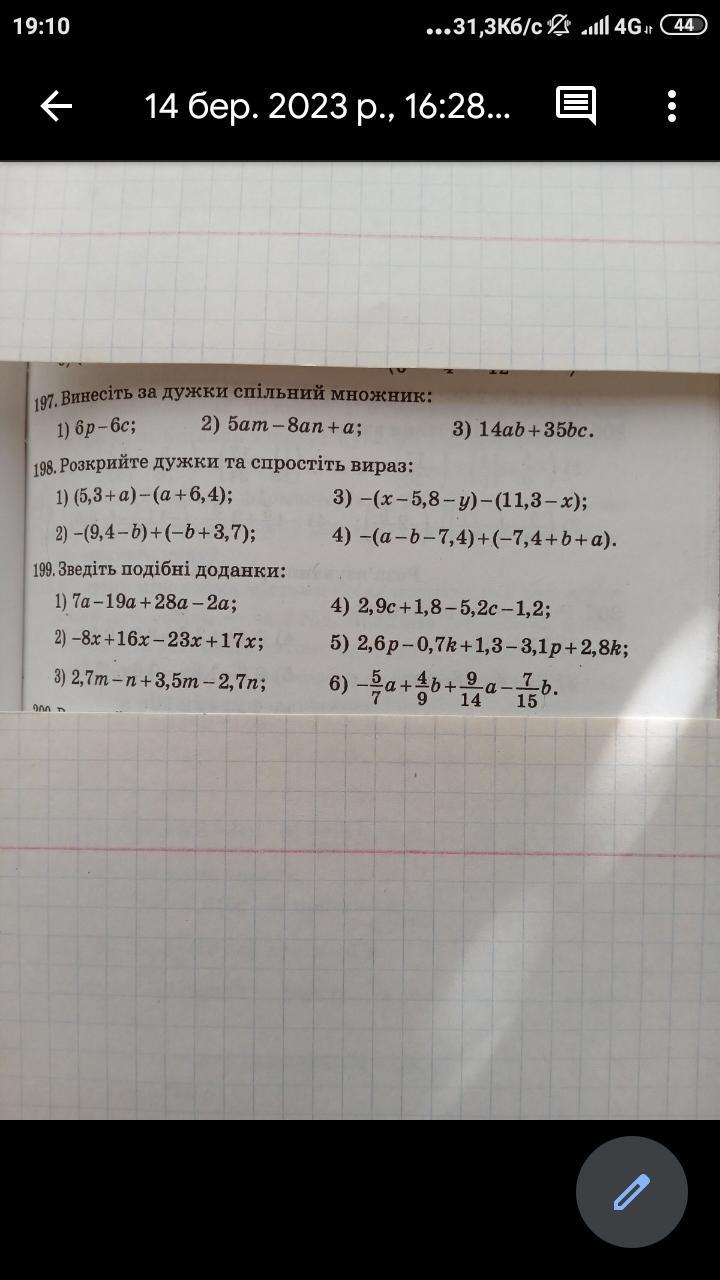 19:10 ...31,3Кб/с 4G 44
14 бер. 2023 р., 16:28...
197. Винесіть за дужки спільний множник:
1) 6p−6c; 2) 5am−8an+a; 3) 14ab+35bc.
198. Розкрийте дужки та спростіть вираз:
1) (5,3+a)−(a+6,4); 3) −(x−5,8−y)−(11,3−x);
2) −(9,4−b)+(−b+3,7); 4) −(a−b−7,4)+(−7,4+b+a).
199. Зведіть подібні доданки:
1) 7a−19a+28a−2a; 4) 2,9c+1,8−5,2c−1,2;
2) −8x+16x−23x+17x; 5) 2,6p−0,7k+1,3−3,1p+2,8k;
3) 2,7m−n+3,5m−2,7n; 6) −5/7a+4/9b+9/14a−7/15b.